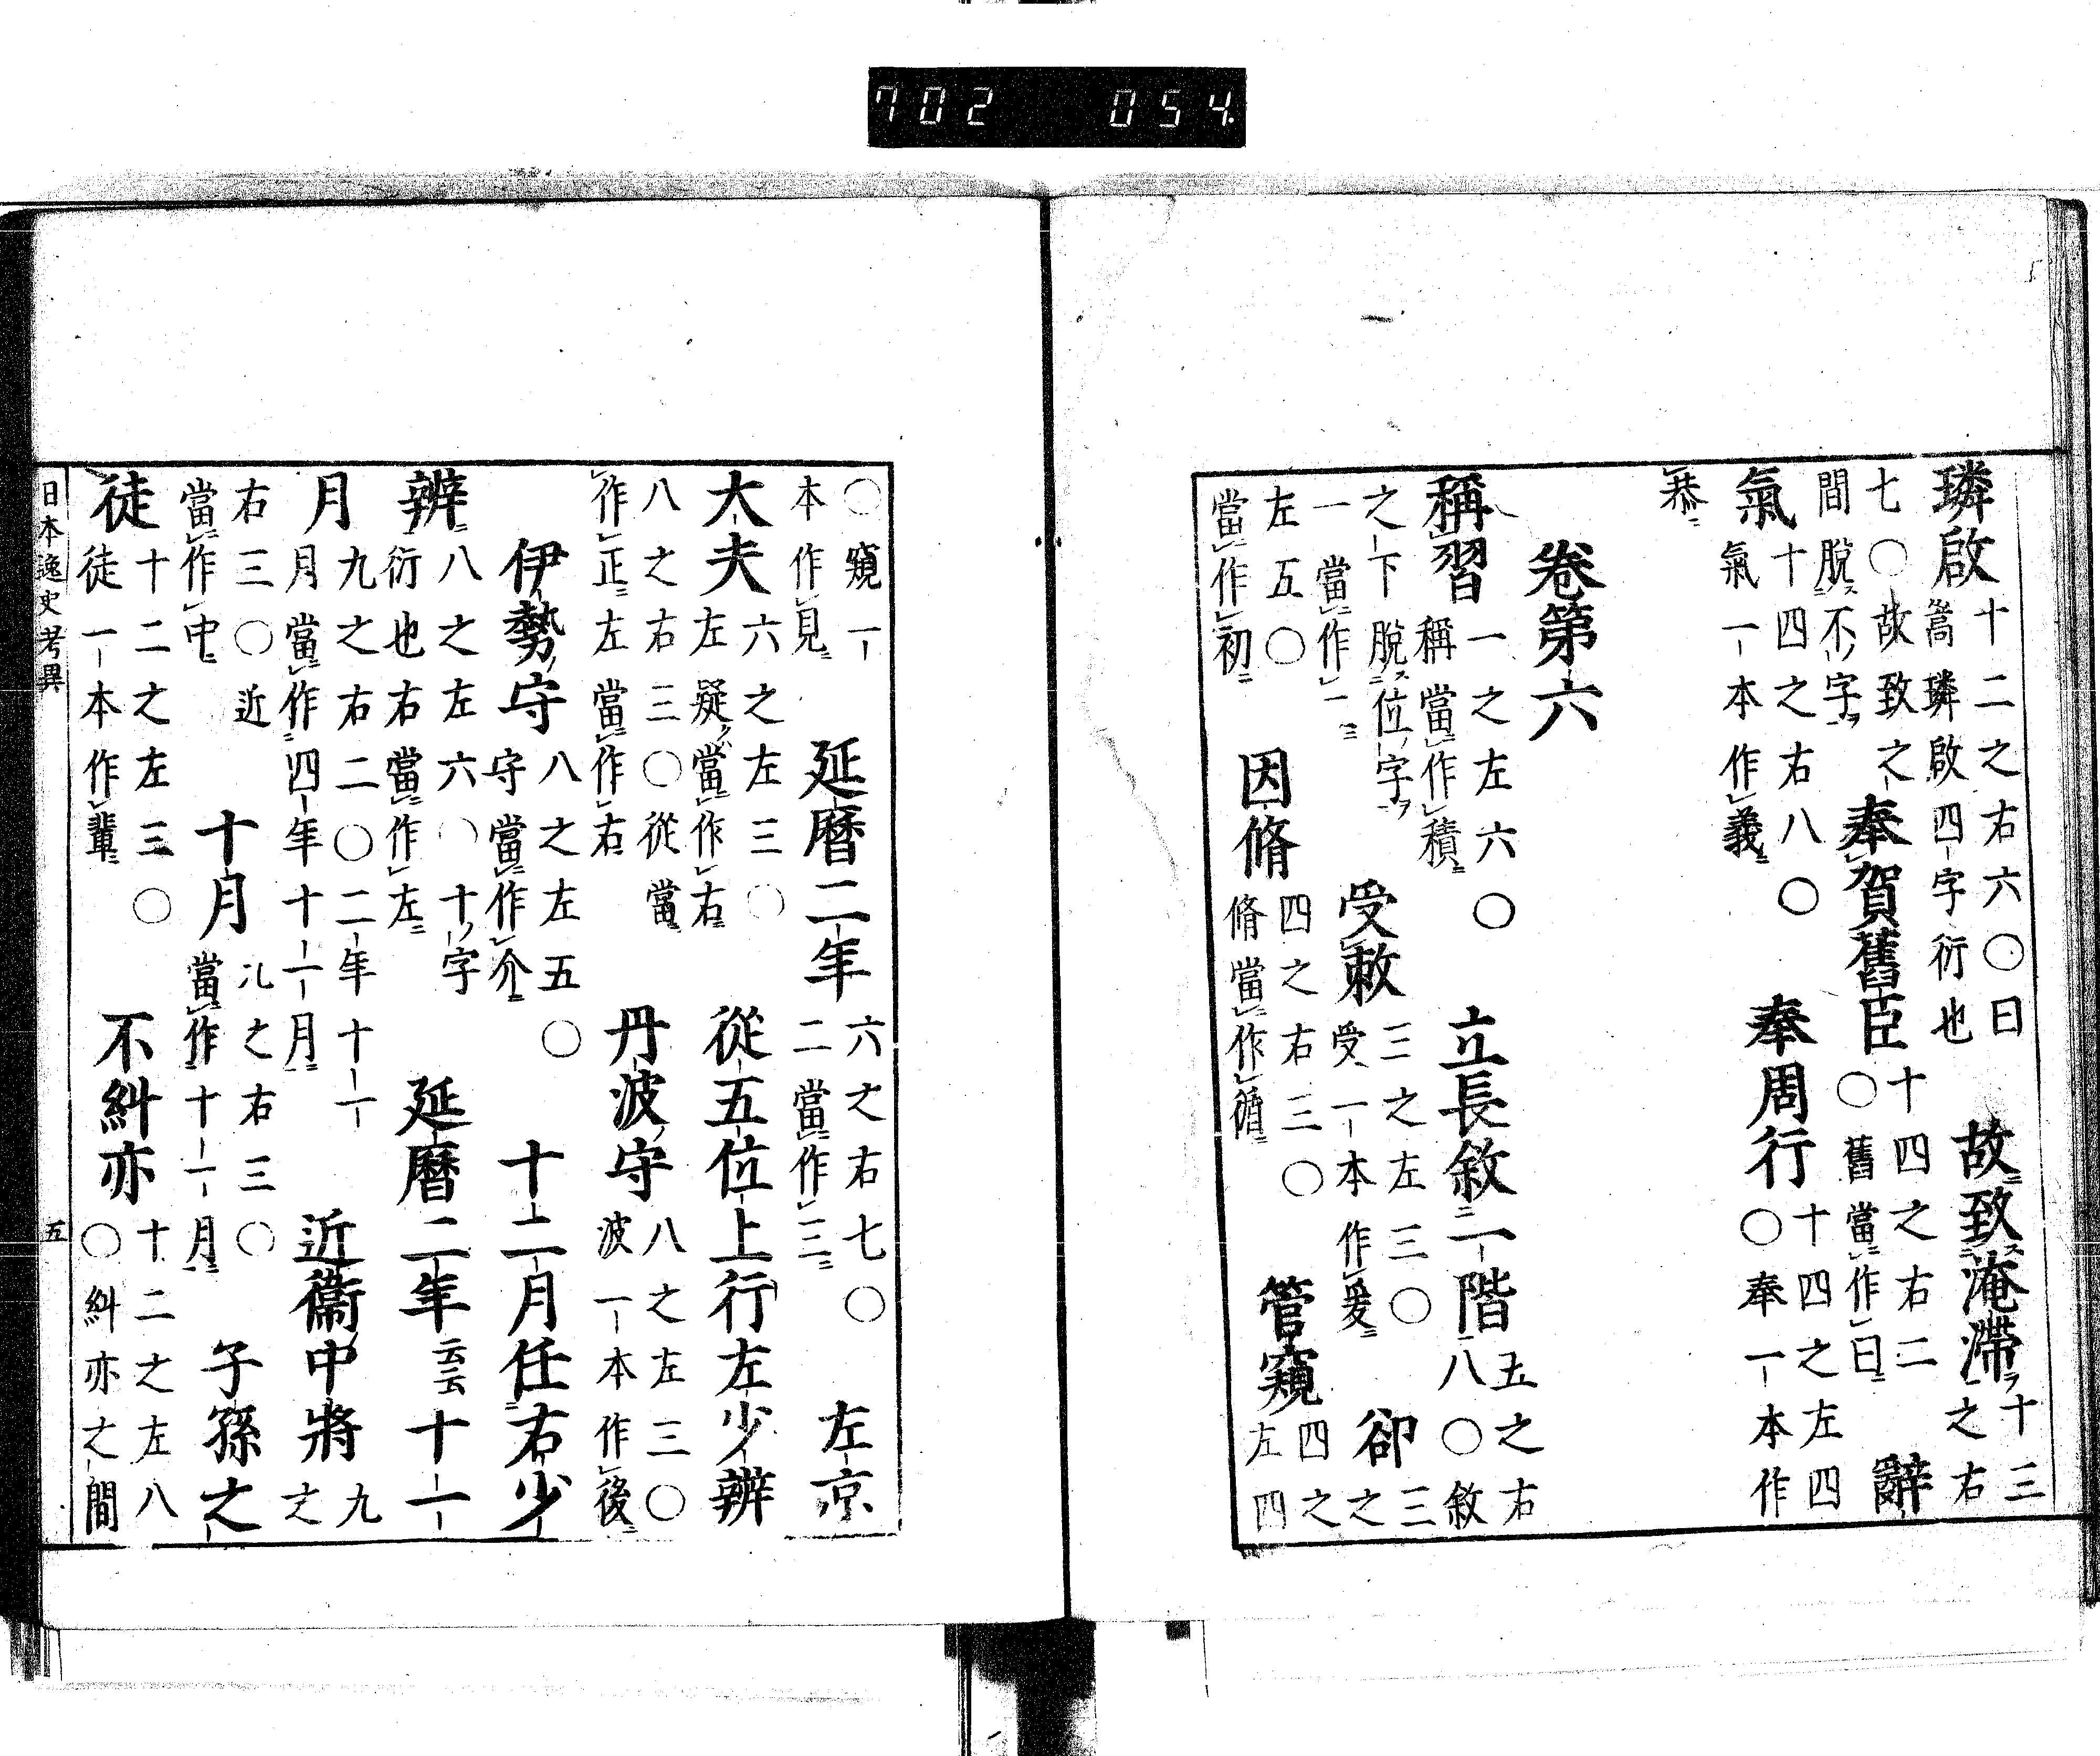 702 054
璘啟十二之右六〇曰蒿璘啟四字衍也故致淹滯十三之右
七〇故致之間脫不字奉賀舊臣十四之右二〇舊當作曰辭
氣十四之右八〇氣一本作義奉周行十四之左四〇奉一本作
恭
卷第六
稱習一之左六〇稱當作積立長敘二階五之右八〇敘
之下脫位字一當作二受敕三之左三〇受一本作爰卻三之
左五〇當作初因脩四之右三〇脩當作循管窺四之左四
〇窺一本作見延曆二年六之右七〇二當作三左京
大夫六之左三〇左疑當作右從五位上行左少辨
八之右三〇從當作正左當作右丹波守八之左三〇波一本作後
伊勢守八之左五〇守當作介十二月任右少
辨八之左六〇十字衍也右當作左延曆二年云云十一
月九之右二〇二年十一月當作四年十一月近衞中將九之
右三〇近當作中十月九之右三〇當作十一月子孫之
徒十二之左三〇徒一本作輩不糾亦十二之左八〇糾亦之間
日本逸史考異 五